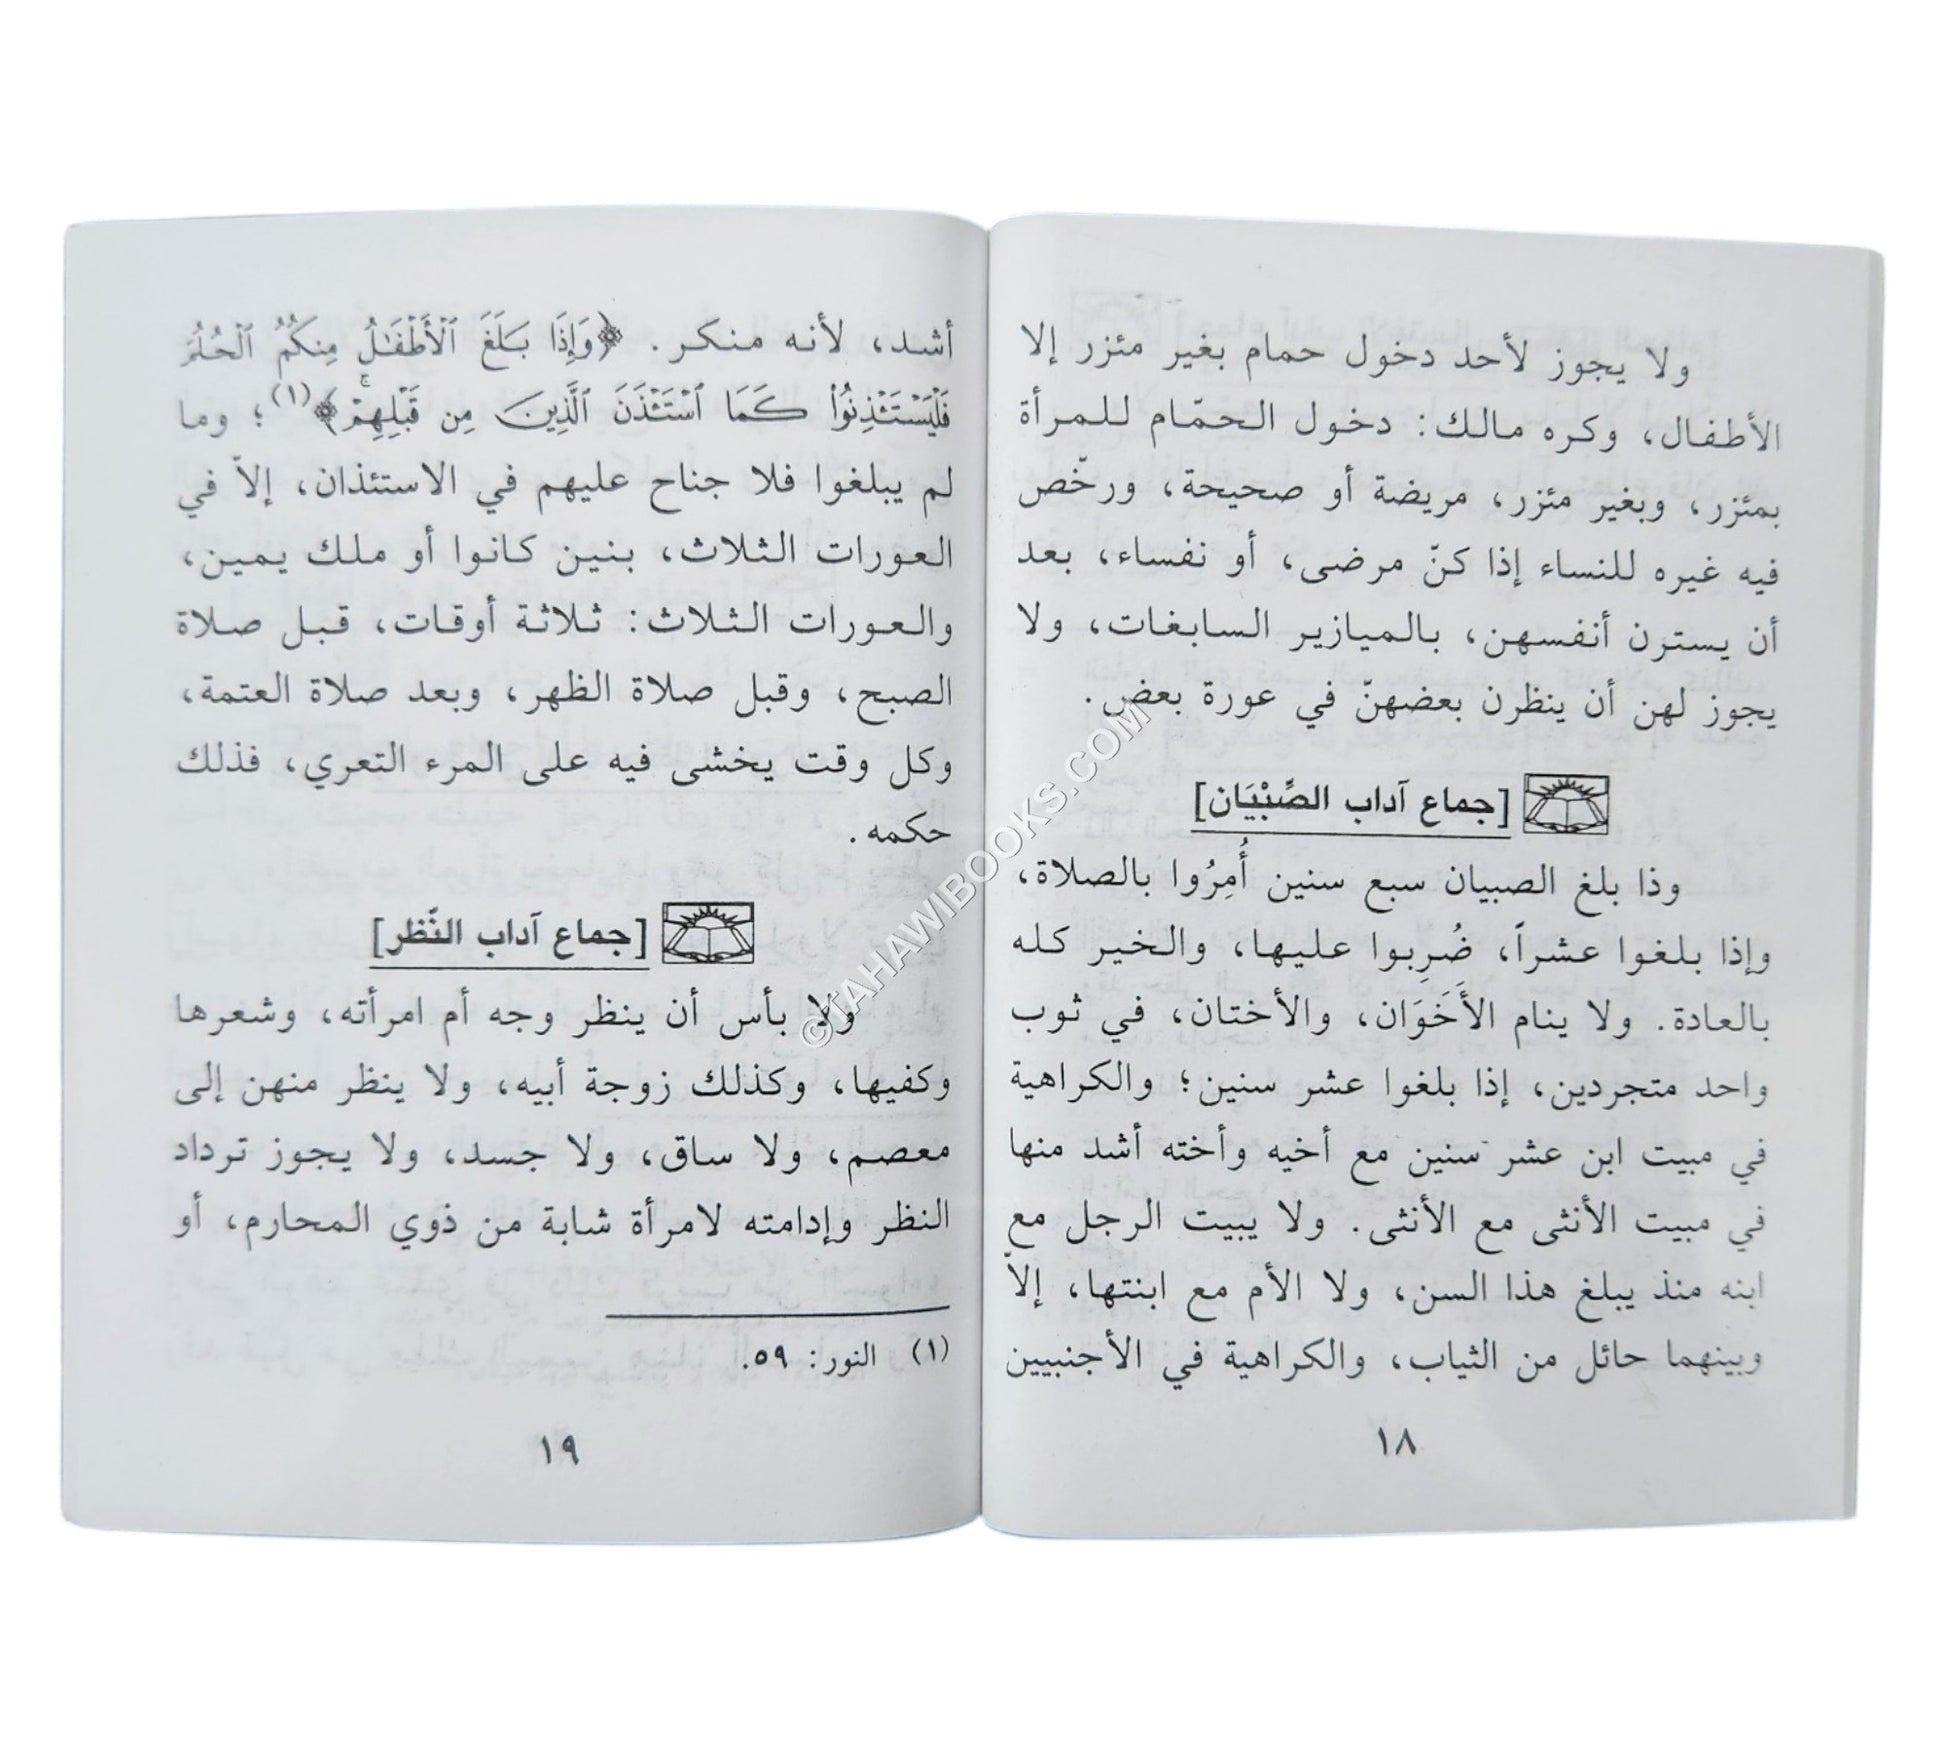 ولا يجوز لأحد دخول حمام بغير مئزر إلا
الأطفال، وكره مالك: دخول الحمّام للمرأة
بمئزر، وبغير مئزر، مريضة أو صحيحة، ورخّص
فيه غيره للنساء إذا كنّ مرضى، أو نفساء، بعد
أن يسترن أنفسهن، بالميازير السابغات، ولا
يجوز لهن أن ينظرن بعضهنّ في عورة بعض.
[جماع آداب الصِّبْيَان]
وذا بلغ الصبيان سبع سنين أُمِرُوا بالصلاة،
وإذا بلغوا عشراً، ضُرِبوا عليها، والخير كله
بالعادة. ولا ينام الأَخَوَان، والأختان، في ثوب
واحد متجردين، إذا بلغوا عشر سنين؛ والكراهية
في مبيت ابن عشر سنين مع أخيه وأخته أشد منها
في مبيت الأنثى مع الأنثى. ولا يبيت الرجل مع
ابنه منذ يبلغ هذا السن، ولا الأم مع ابنتها، إلاّ
وبينهما حائل من الثياب، والكراهية في الأجنبيين
١٨
أشد، لأنه منكر. ﴿وَإِذَا بَلَغَ ٱلْأَطْفَٰلُ مِنكُمُ ٱلْحُلُمَ
فَلْيَسْتَـْٔذِنُوا۟ كَمَا ٱسْتَـْٔذَنَ ٱلَّذِينَ مِن قَبْلِهِمْ ۚ﴾(١)؛ وما
لم يبلغوا فلا جناح عليهم في الاستئذان، إلاّ في
العورات الثلاث، بنين كانوا أو ملك يمين،
والعورات الثلاث: ثلاثة أوقات، قبل صلاة
الصبح، وقبل صلاة الظهر، وبعد صلاة العتمة،
وكل وقت يخشى فيه على المرء التعري، فذلك
حكمه.
[جماع آداب النَّظر]
ولا بأس أن ينظر وجه أم امرأته، وشعرها
وكفيها، وكذلك زوجة أبيه، ولا ينظر منهن إلى
معصم، ولا ساق، ولا جسد، ولا يجوز ترداد
النظر وإدامته لامرأة شابة من ذوي المحارم، أو
(١) النور: ٥٩.
١٩
©TAHAWIBOOKS.COM